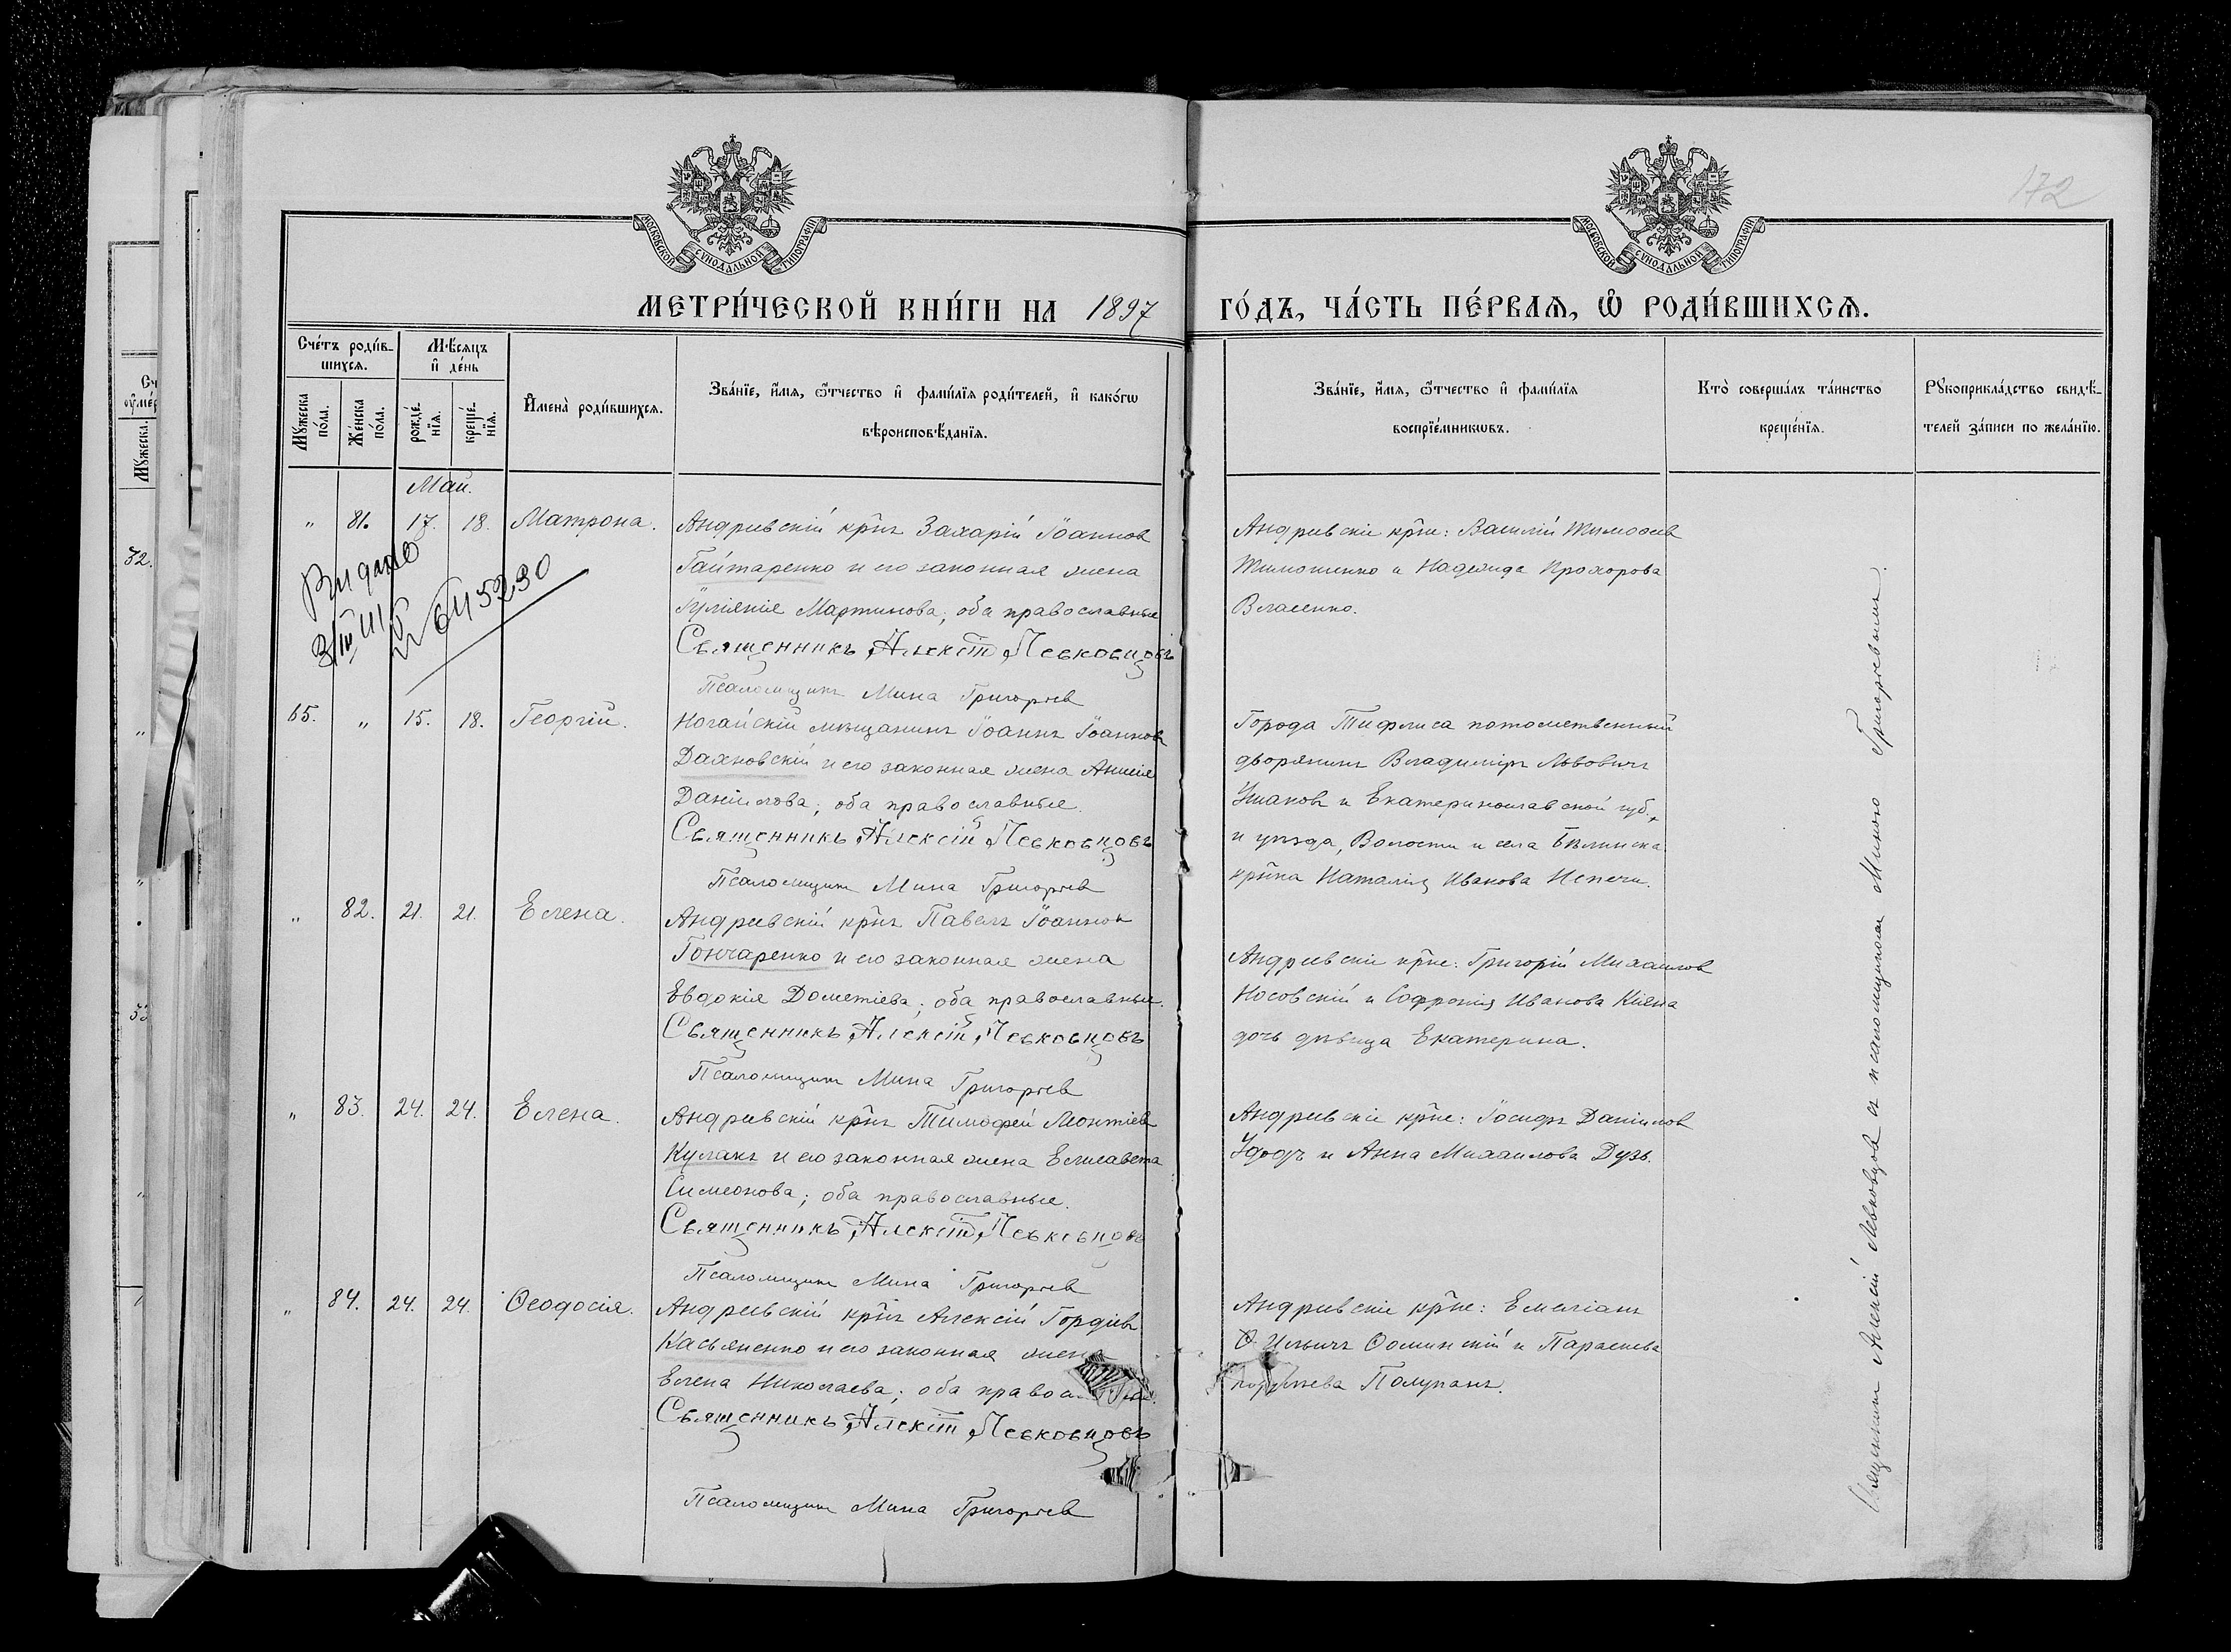 172
МОСКОВСКОЙ СѴНОДАЛЬНОЙ ТИПОГРАФІИ
МОСКОВСКОЙ СѴНОДАЛЬНОЙ ТИПОГРАФІИ
МЕТРИ́ЧЕСКОЙ КНИ́ГИ НА 1897 ГО́ДЪ, ЧА́СТЬ ПЕ́РВАѦ, Ѽ РОДИ́ВШИХСѦ.
Сче́тъ роди́в-
шихсѧ.
Мꙋ́жеска по́ла.
Же́нска по́ла.
Мѣ́сѧцъ и҆ де́нь
рожде́-нїѧ.
креще́-нїѧ.
И҆мена̀ роди́вшихсѧ.
Зва́нїе, и҆́мѧ, ѻ҆́тчество и҆ фами́лїѧ роди́телей, и҆ како́гѡ
вѣроисповѣ́данїѧ.
Зва́нїе, и҆́мѧ, ѻ҆́тчество и҆ фами́лїѧ
воспрїе́мникѡвъ.
Кто̀ соверша́лъ та́инство
креще́нїѧ.
Рꙋкоприкла́дство свидѣ́-
телей за́писи по жела́нїю.
Май.
" 81. 17. 18. Матрона. Андреевскій кр̃нъ Захарій Іоаннов
Гайтаренко и его законная жена
Мартинова; оба православные
Священникъ Алексій Левковцовъ
Псаломщикъ Мина Григорьев
Андреевскіе кр̃не: Василій Тимоѳеев
Тимошенко и Надежда Прохорова
Власенко.
Видано
645290
65. " 15. 18. Георгій. Ногайскій мѣщанинъ Іоаннъ Іоаннов
Дахновскій и его законная жена Анисія
Даніилова; оба православные.
Священникъ Алексій Левковцовъ
Псаломщикъ Мина Григорьев
Города Тифлиса потомственный
дворянинъ Владиміръ Львовичъ
Ушаковъ и Екатеринославской губ.
и уѣзда, Волости и села
кр̃нка Наталія Иванова
" 82. 21. 21. Елена. Андреевскій кр̃нъ Павелъ Іоаннов
Гончаренко и его законная жена
Евдокія Дометіева; оба православные.
Священникъ Алексій Левковцовъ
Псаломщикъ Мина Григорьев
Андреевскіе кр̃не: Григорій Михаилов
Носовскій и Софронія Иванова Кіяна
дочь дѣвица Екатерина.
" 83. 24. 24. Елена. Андреевскій кр̃нъ Тимофей Леонтіев
Кулакъ и его законная жена Елисавета
Симеонова; оба православные.
Священникъ Алексій Левковцовъ
Псаломщикъ Мина Григорьев
Андреевскіе кр̃не: Іосифъ Даніилов
Удодъ и Анна Михаилова Дузь.
" 84. 24. 24. Ѳеодосія. Андреевскій кр̃нъ Алексій Гордіев
Касьяненко и его законная жена
Елена Николаева; оба
Священникъ Алексій Левковцовъ
Псаломщикъ Мина Григорьев
Андреевскіе кр̃не: Емеліанъ
Ильичъ Ѳоминскій и Параскева
Полупанъ.
Священникъ Алексій Левковцовъ съ псаломщикомъ Миною Григорьевымъ.